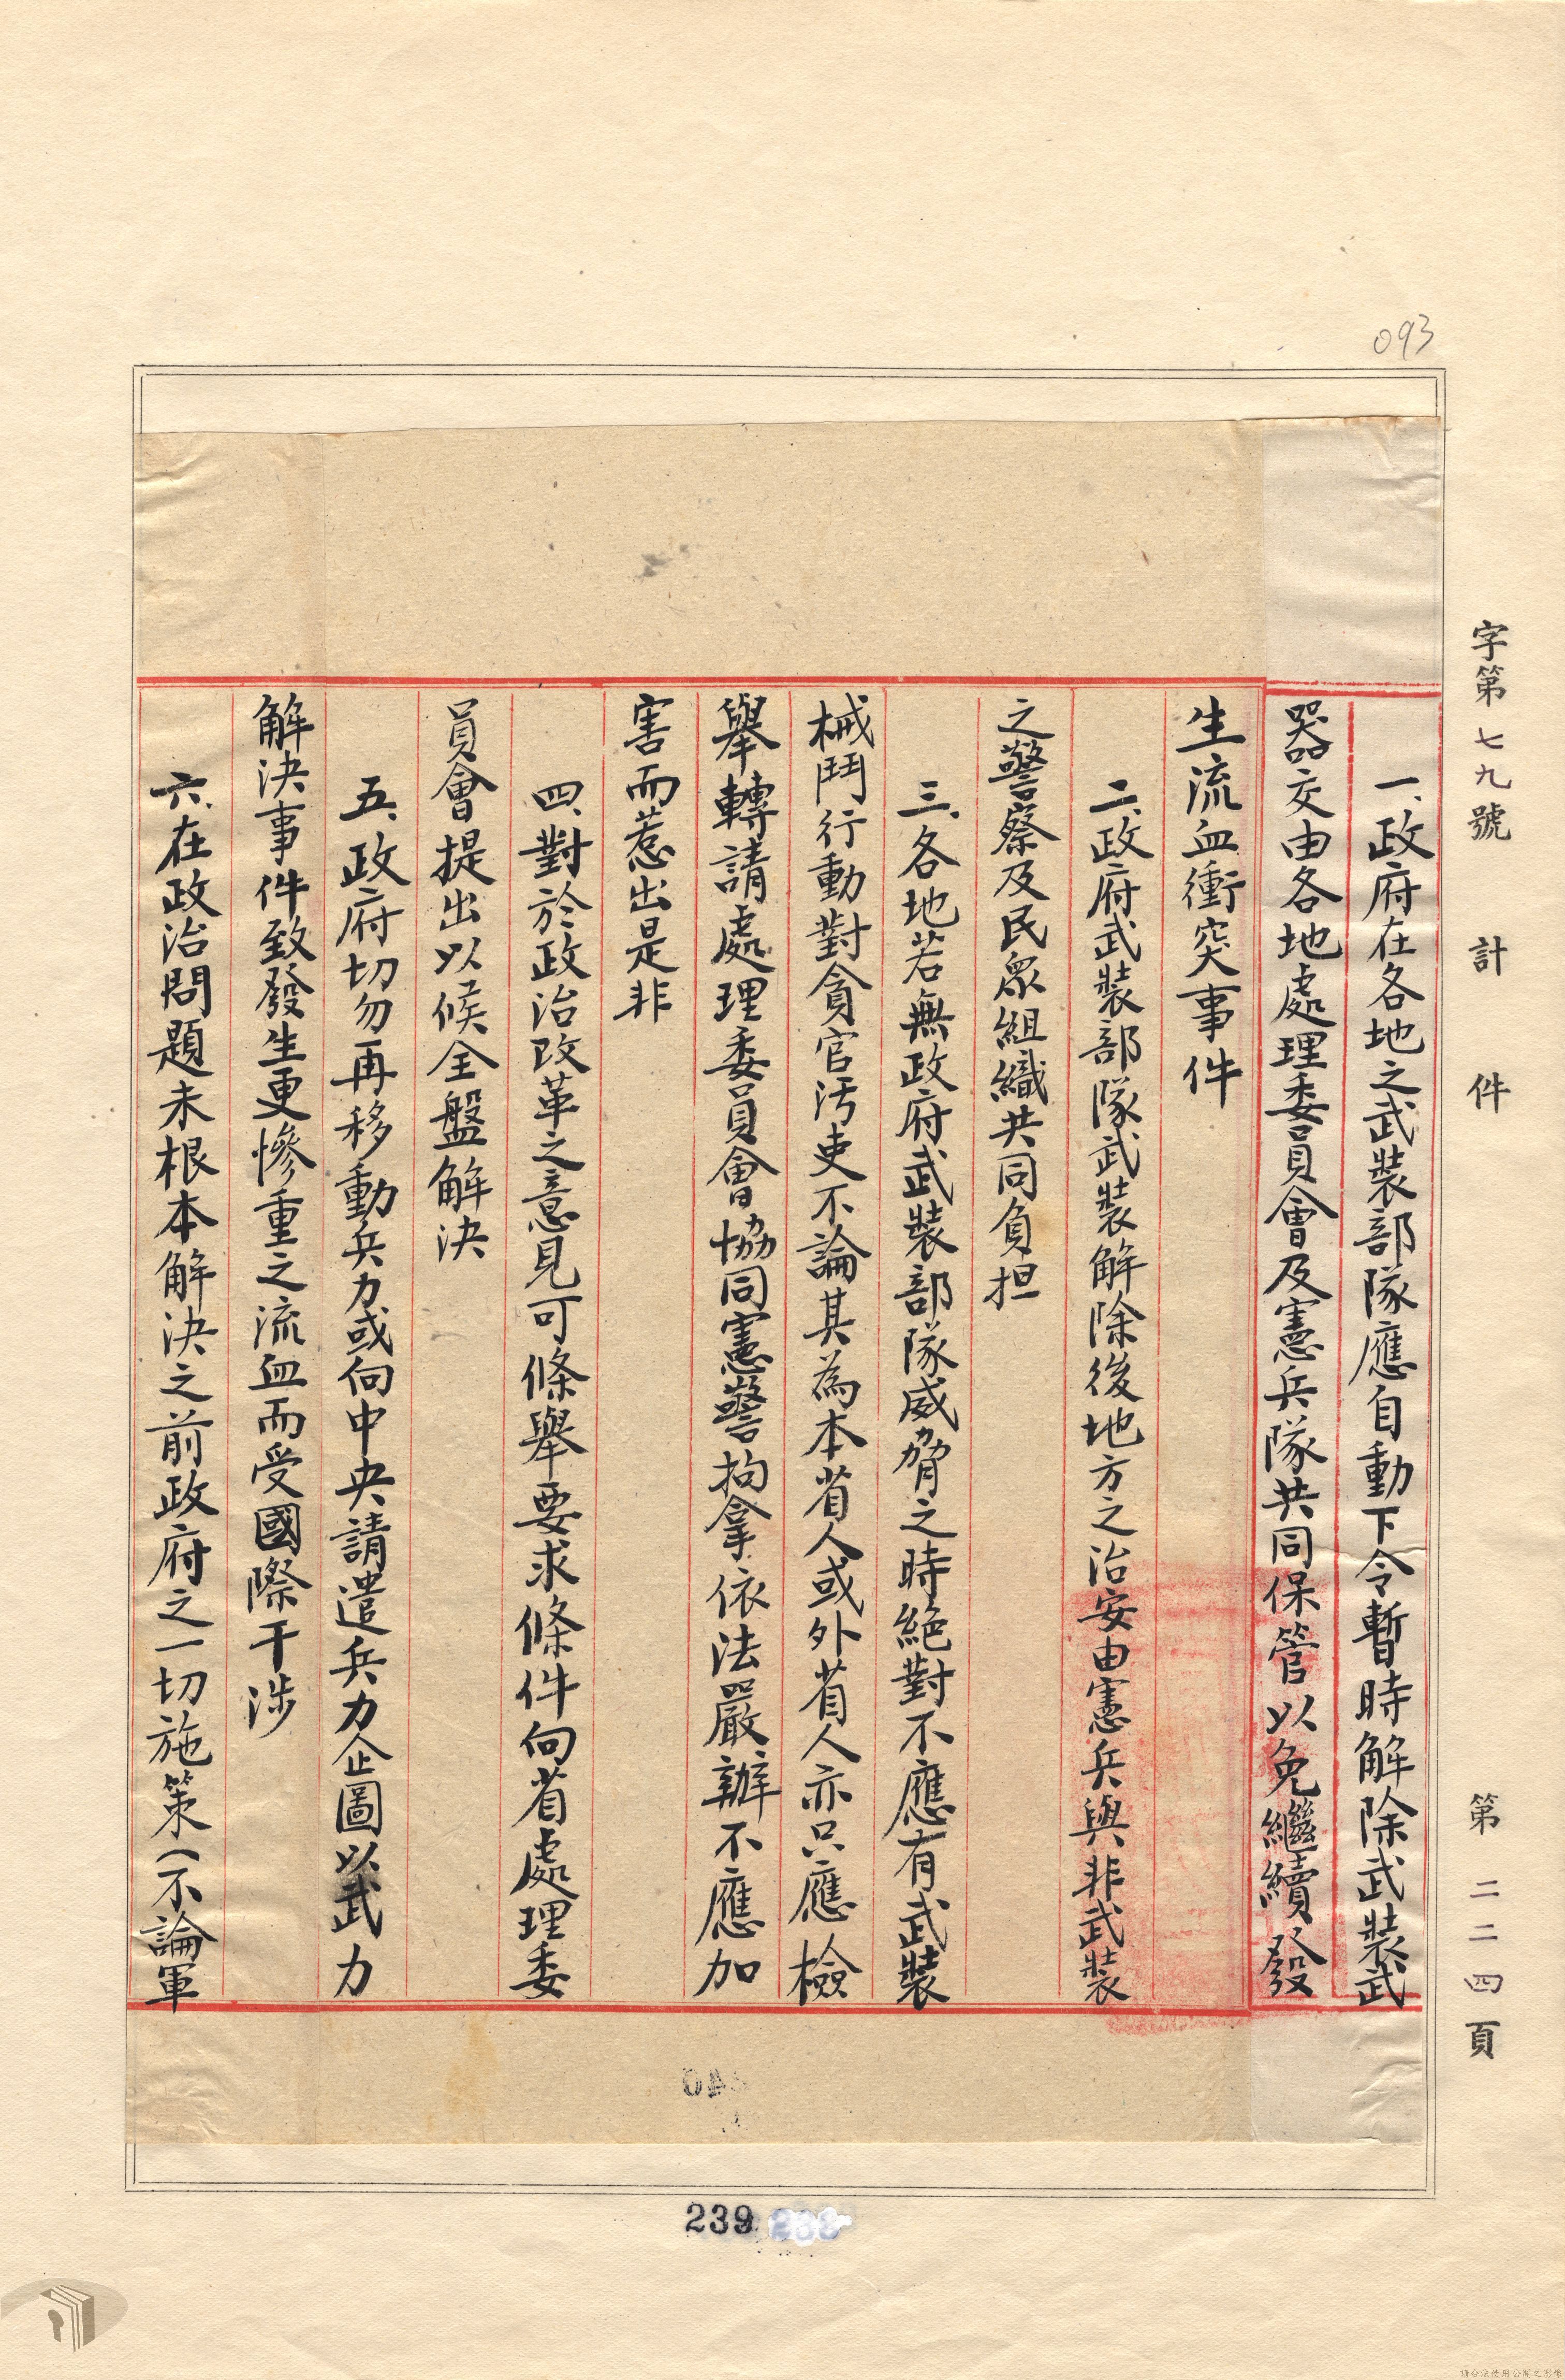 093
字第七九號 計 件 第二二四頁
一、政府在各地之武裝部隊應自動下令暫時解除武裝武
器交由各地處理委員會及憲兵隊共同保管以免繼續發
生流血衝突事件
二、政府武裝部隊武裝解除後地方之治安由憲兵與非武裝
之警察及民眾組織共同負担
三、各地若無政府武裝部隊威脅之時絕對不應有武裝
械鬥行動對貪官污吏不論其為本省人或外省人亦只應檢
舉轉請處理委員會協同憲警拘拿依法嚴辦不應加
害而惹出是非
四、對於政治改革之意見可條舉要求條件向省處理委
員會提出以候全盤解決
五、政府切勿再移動兵力或向中央請遣兵力企圖以武力
解決事件致發生更慘重之流血而受國際干涉
六、在政治問題未根本解決之前政府之一切施策(不論軍
239
請合法使用公開之影像